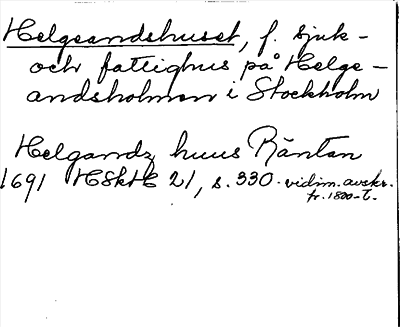 Helgeandshuset, f. sjuk-
och fattighus på Helge-
andsholmen i Stockholm
Helgandz huus Räntan
1691 HSkH 21, s. 330. vidim. avskr.
fr. 1800-t.